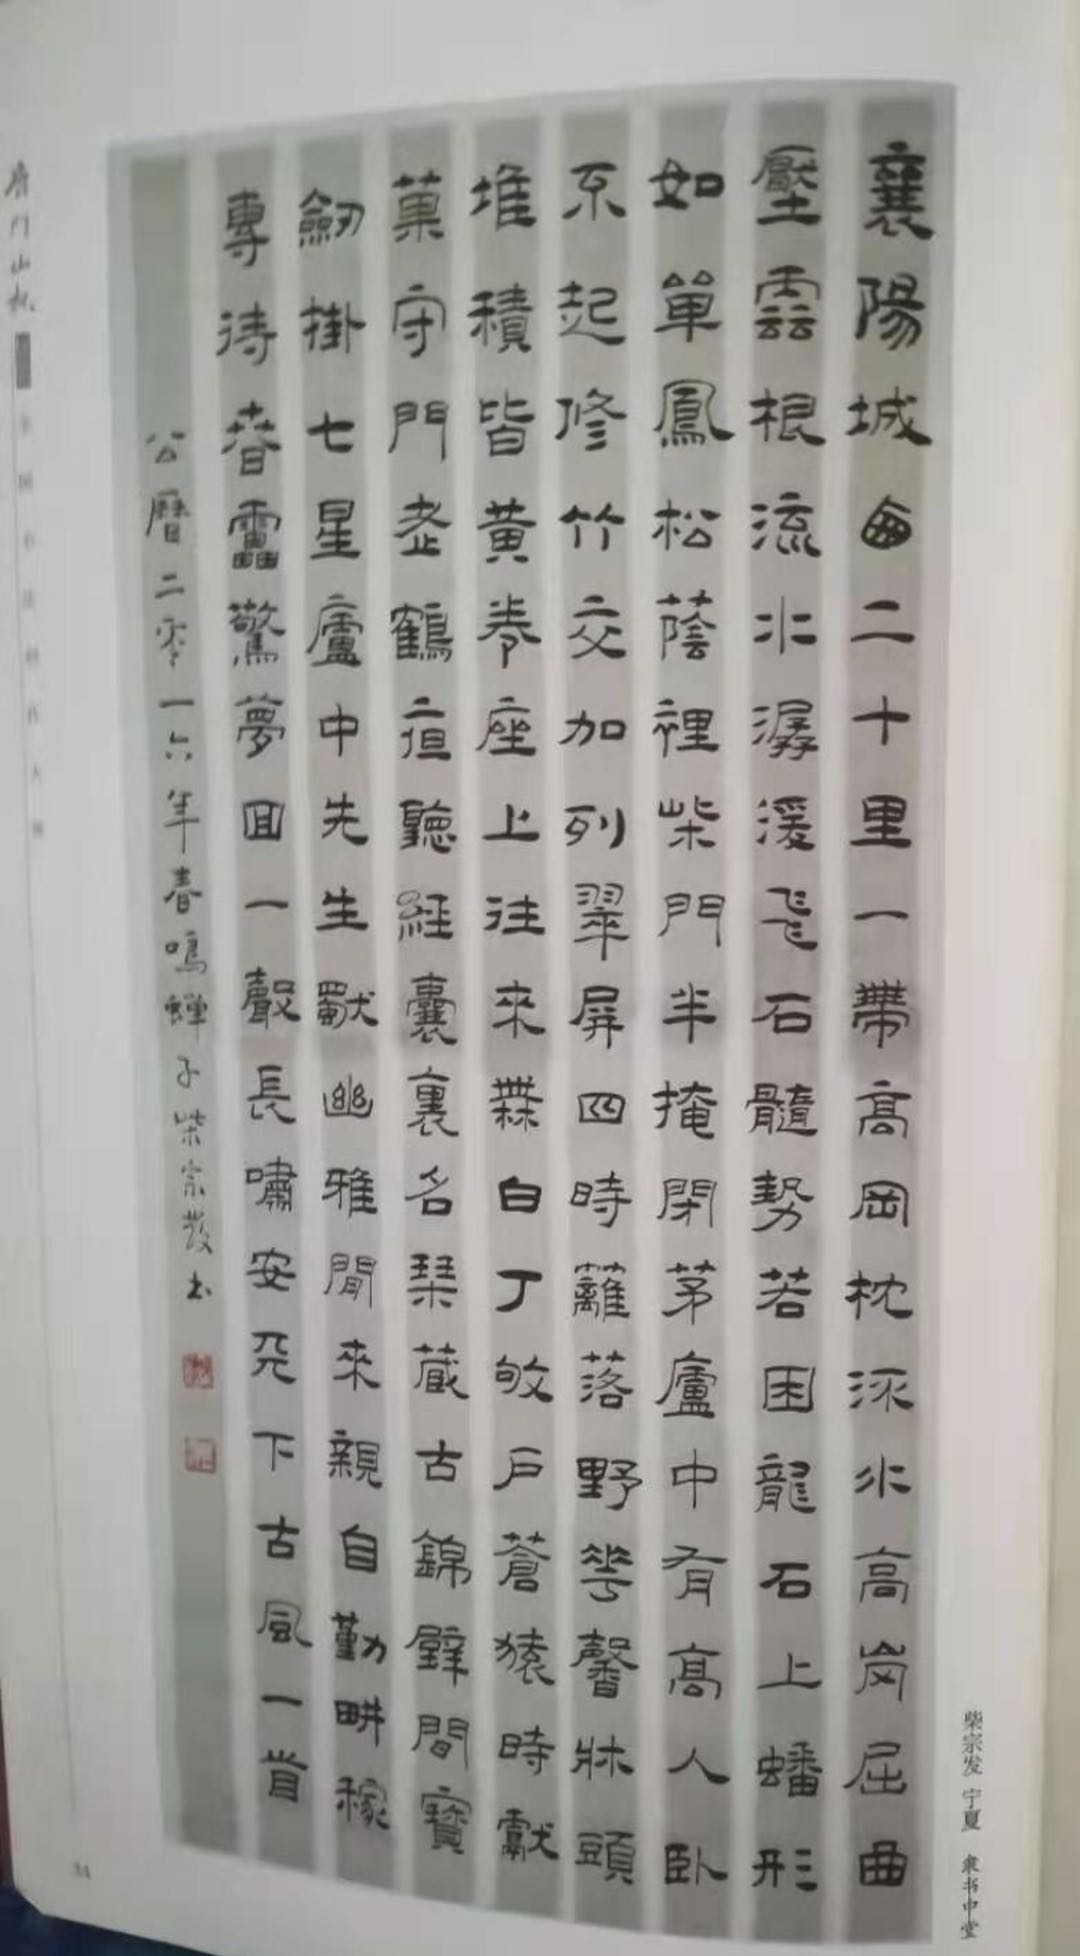 襄陽城西二十里一帶高岡枕流水高岗屈曲
壓雲根流水潺湲飛石髓勢若困龍石上蟠形
如單鳳松蔭裡柴門半掩閉茅廬中有高人臥
不起修竹交加列翠屏四時蘺落野花馨牀頭
堆積皆黄卷座上往來無白丁敂户蒼猿時獻
菓守門老鶴夜聽經囊裏名琴藏古錦壁間寶
劒掛七星廬中先生獨幽雅閒來親自勤畊稼
專待春靁驚夢回一聲長嘯安天下古風一首
公曆二零一六年春鳴蟬子柴宗發书
柴宗发 宁夏 隶书中堂